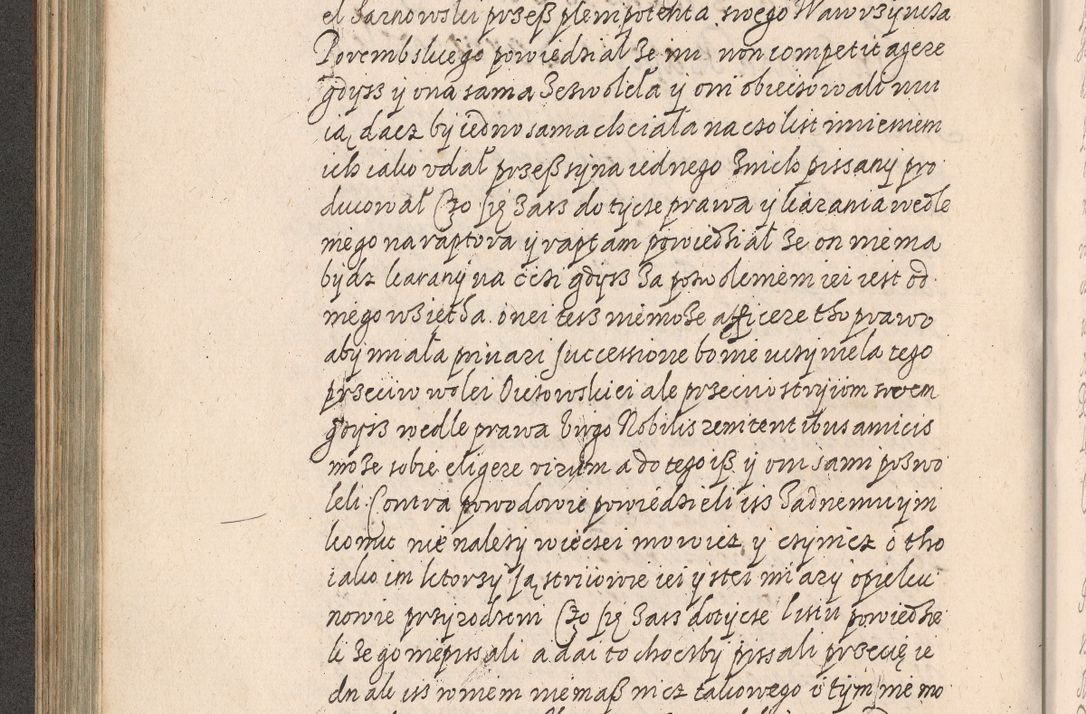 el Sarnowski przeß plenipotenta swego Wawrzyncza
Porembskiego powiedział ze mu non competit agere
gdysz y ona sama zezwoleła y oni obieczowali mu
ią dacz by iedno sama chciała na czo list imieniem
ich iako vdał przeß syna iednego znich pissany pro
ducował Czo się zasz dotycze prawa y karania wedle
niego na raptora y raptam powiedział ze on niema
bydz karany na czci gdysz za pozwoleniem iei iest od
niego wzięta. onei tesz niemoze afficere tho prawo
aby miała privari successione bo nie uczyniela tego
przeciw wolei Oiczowskiei ale przeciw stryiom swem
gdysz wedle prawa virgo Nobilis renitentibus amicis
moze sobie eligere virum a do tego iß y oni sami pozwo
leli. Contra powodowie powiedzieli isz zadnemu ym
komu nie nalezy wieczei mowicz y czynicz o tho
iako im ktorzy są striiowie iei y stei miary opieku
nowie przyrodzeni Czo się zasz dotycze listu powiedzie
li ze go niepissali a dai to choczby pissali przecię ie
dnak isz wniem niemaß nicz takowego o tym nie mo